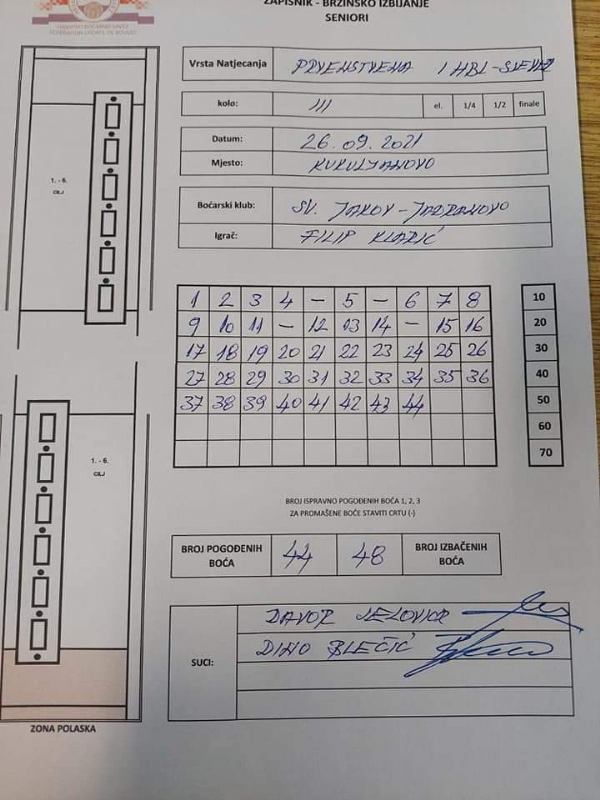 ZAPISNIK - BRZINSKO IZBIJANJE
SENIORI
Vrsta Natjecanja PRVENSTVENA 1 HBL-SJEVER
kolo: III el. 1/4 1/2 finale
Datum: 26.09.2021
Mjesto: KUKULJANOVO
Boćarski klub: SV. JAKOV-JADRANOVO
Igrač: FILIP KLARIĆ
1. - 6.
CILJ
1 2 3 4 – 5 – 6 7 8 10
9 10 11 – 12 13 14 – 15 16 20
17 18 19 20 21 22 23 24 25 26 30
27 28 29 30 31 32 33 34 35 36 40
37 38 39 40 41 42 43 44 50
60
70
1. - 6.
CILJ
BROJ ISPRAVNO POGOĐENIH BOĆA 1, 2, 3
ZA PROMAŠENE BOĆE STAVITI CRTU (-)
BROJ POGOĐENIH BOĆA 44 48 BROJ IZBAČENIH BOĆA
SUCI:
DAVOR JELOVICA
DINO BLEČIĆ
ZONA POLASKA